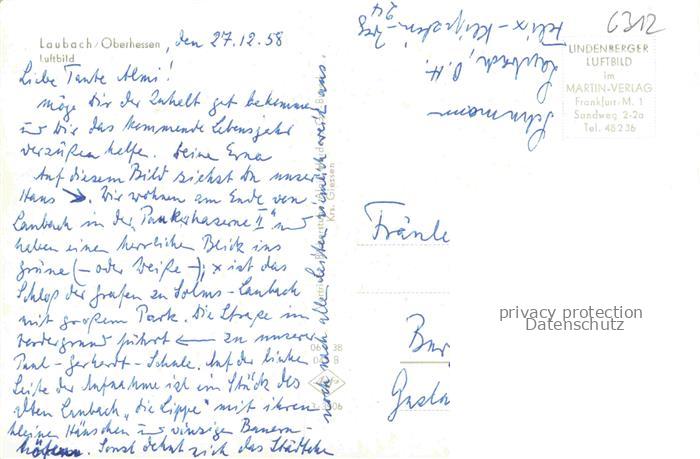 Laubach/Oberhessen, den 27.12.58
Luftbild
Liebe Tante Almi!
möge Dir der Inhalt gut bekommen
und Dir das kommende Lebensjahr
versüßen helfen. Deine Erna
Auf diesem Bild siehst Du unser
Haus ↘. Wir wohnen am Ende von
Laubach in der "II" und
haben einen herrlichen Blick ins
Grüne (- oder Weiße -); x ist das
Schloß der Grafen zu Solms-Laubach
mit großem Park. Die Straße im
Vordergrund führt ← zu unserer
Paul-Gerhardt-Schule. Auf der linken
Seite der Aufnahme ist ein Stück des
alten Laubach, "die Lippe" mit ihren
kleinen Häuschen und winzigen Bauern-
höfen. Sonst dehnt sich das Städtchen
noch nach allen Seiten ziemlich weit aus.
Krs. Giessen
Schürmann
Laubach, O.H.
Felix-Klipstein-Weg
24
6312
LINDENBERGER
LUFTBILD
im
MARTIN-VERLAG
Frankfurt-M. 1
Sandweg 2-2a
Tel. 48236
Fräule
privacy protection
Datenschutz
Gusta